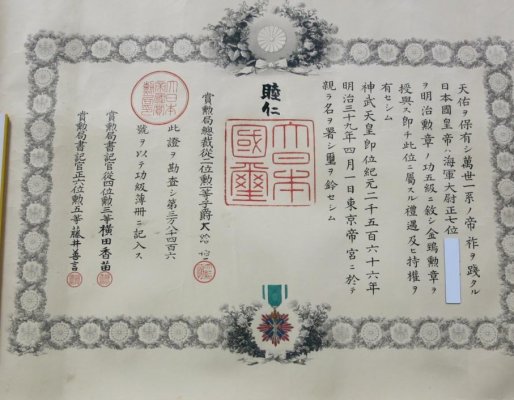 天佑ヲ保有シ萬世一系ノ帝祚ヲ踐タル
日本國皇帝ハ海軍大尉正七位
ヲ明治勲章ノ功五級ニ敍シ金鵄勲章ヲ
授與ス即チ此位ニ屬スル禮遇及ヒ特權ヲ
有セシム
神武天皇即位紀元二千五百六十六年
明治三十九年四月一日東京帝宮ニ於テ
親ラ名ヲ署シ璽ヲ鈐セシム
睦仁
大日本
國璽
賞勲局總裁從二位勲一等子爵大給恒
此證ヲ勘査シ第三万八千四百六
號ヲ以テ功級簿冊ニ記入ス
賞勲局書記官從四位勲三等横田香苗
賞勲局書記官正六位勲五等藤井善言